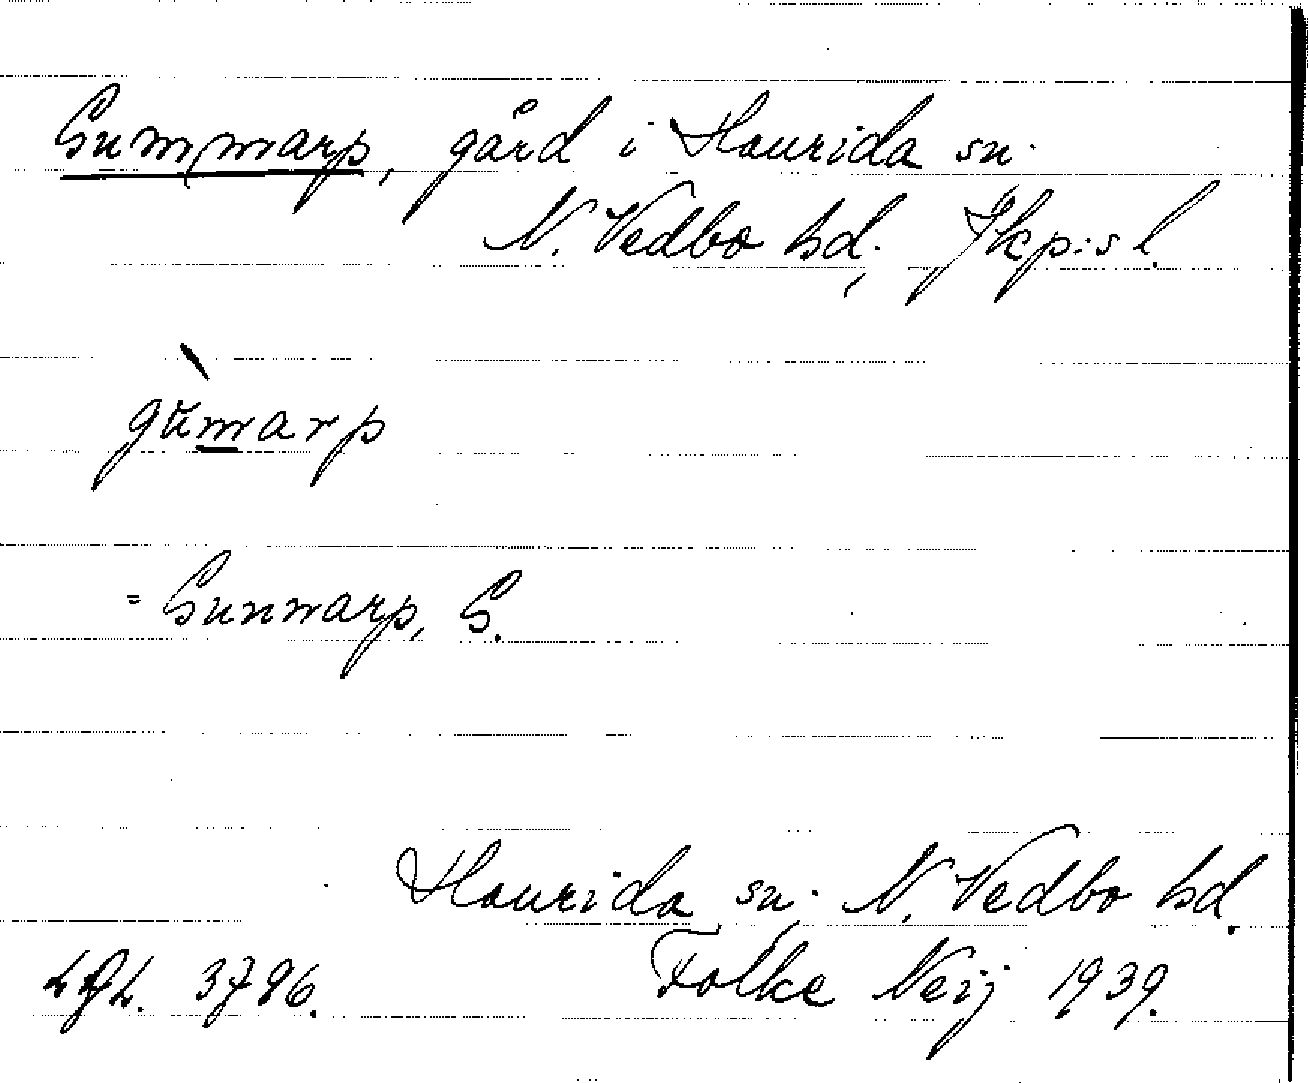 Gummarp, gård i Haurida sn.
N. Vedbo hd., Jkpis l.
gùmarp
= Gunnarp, G.
Haurida sn. N. Vedbo hd.
3786. Folke Neij 1939.